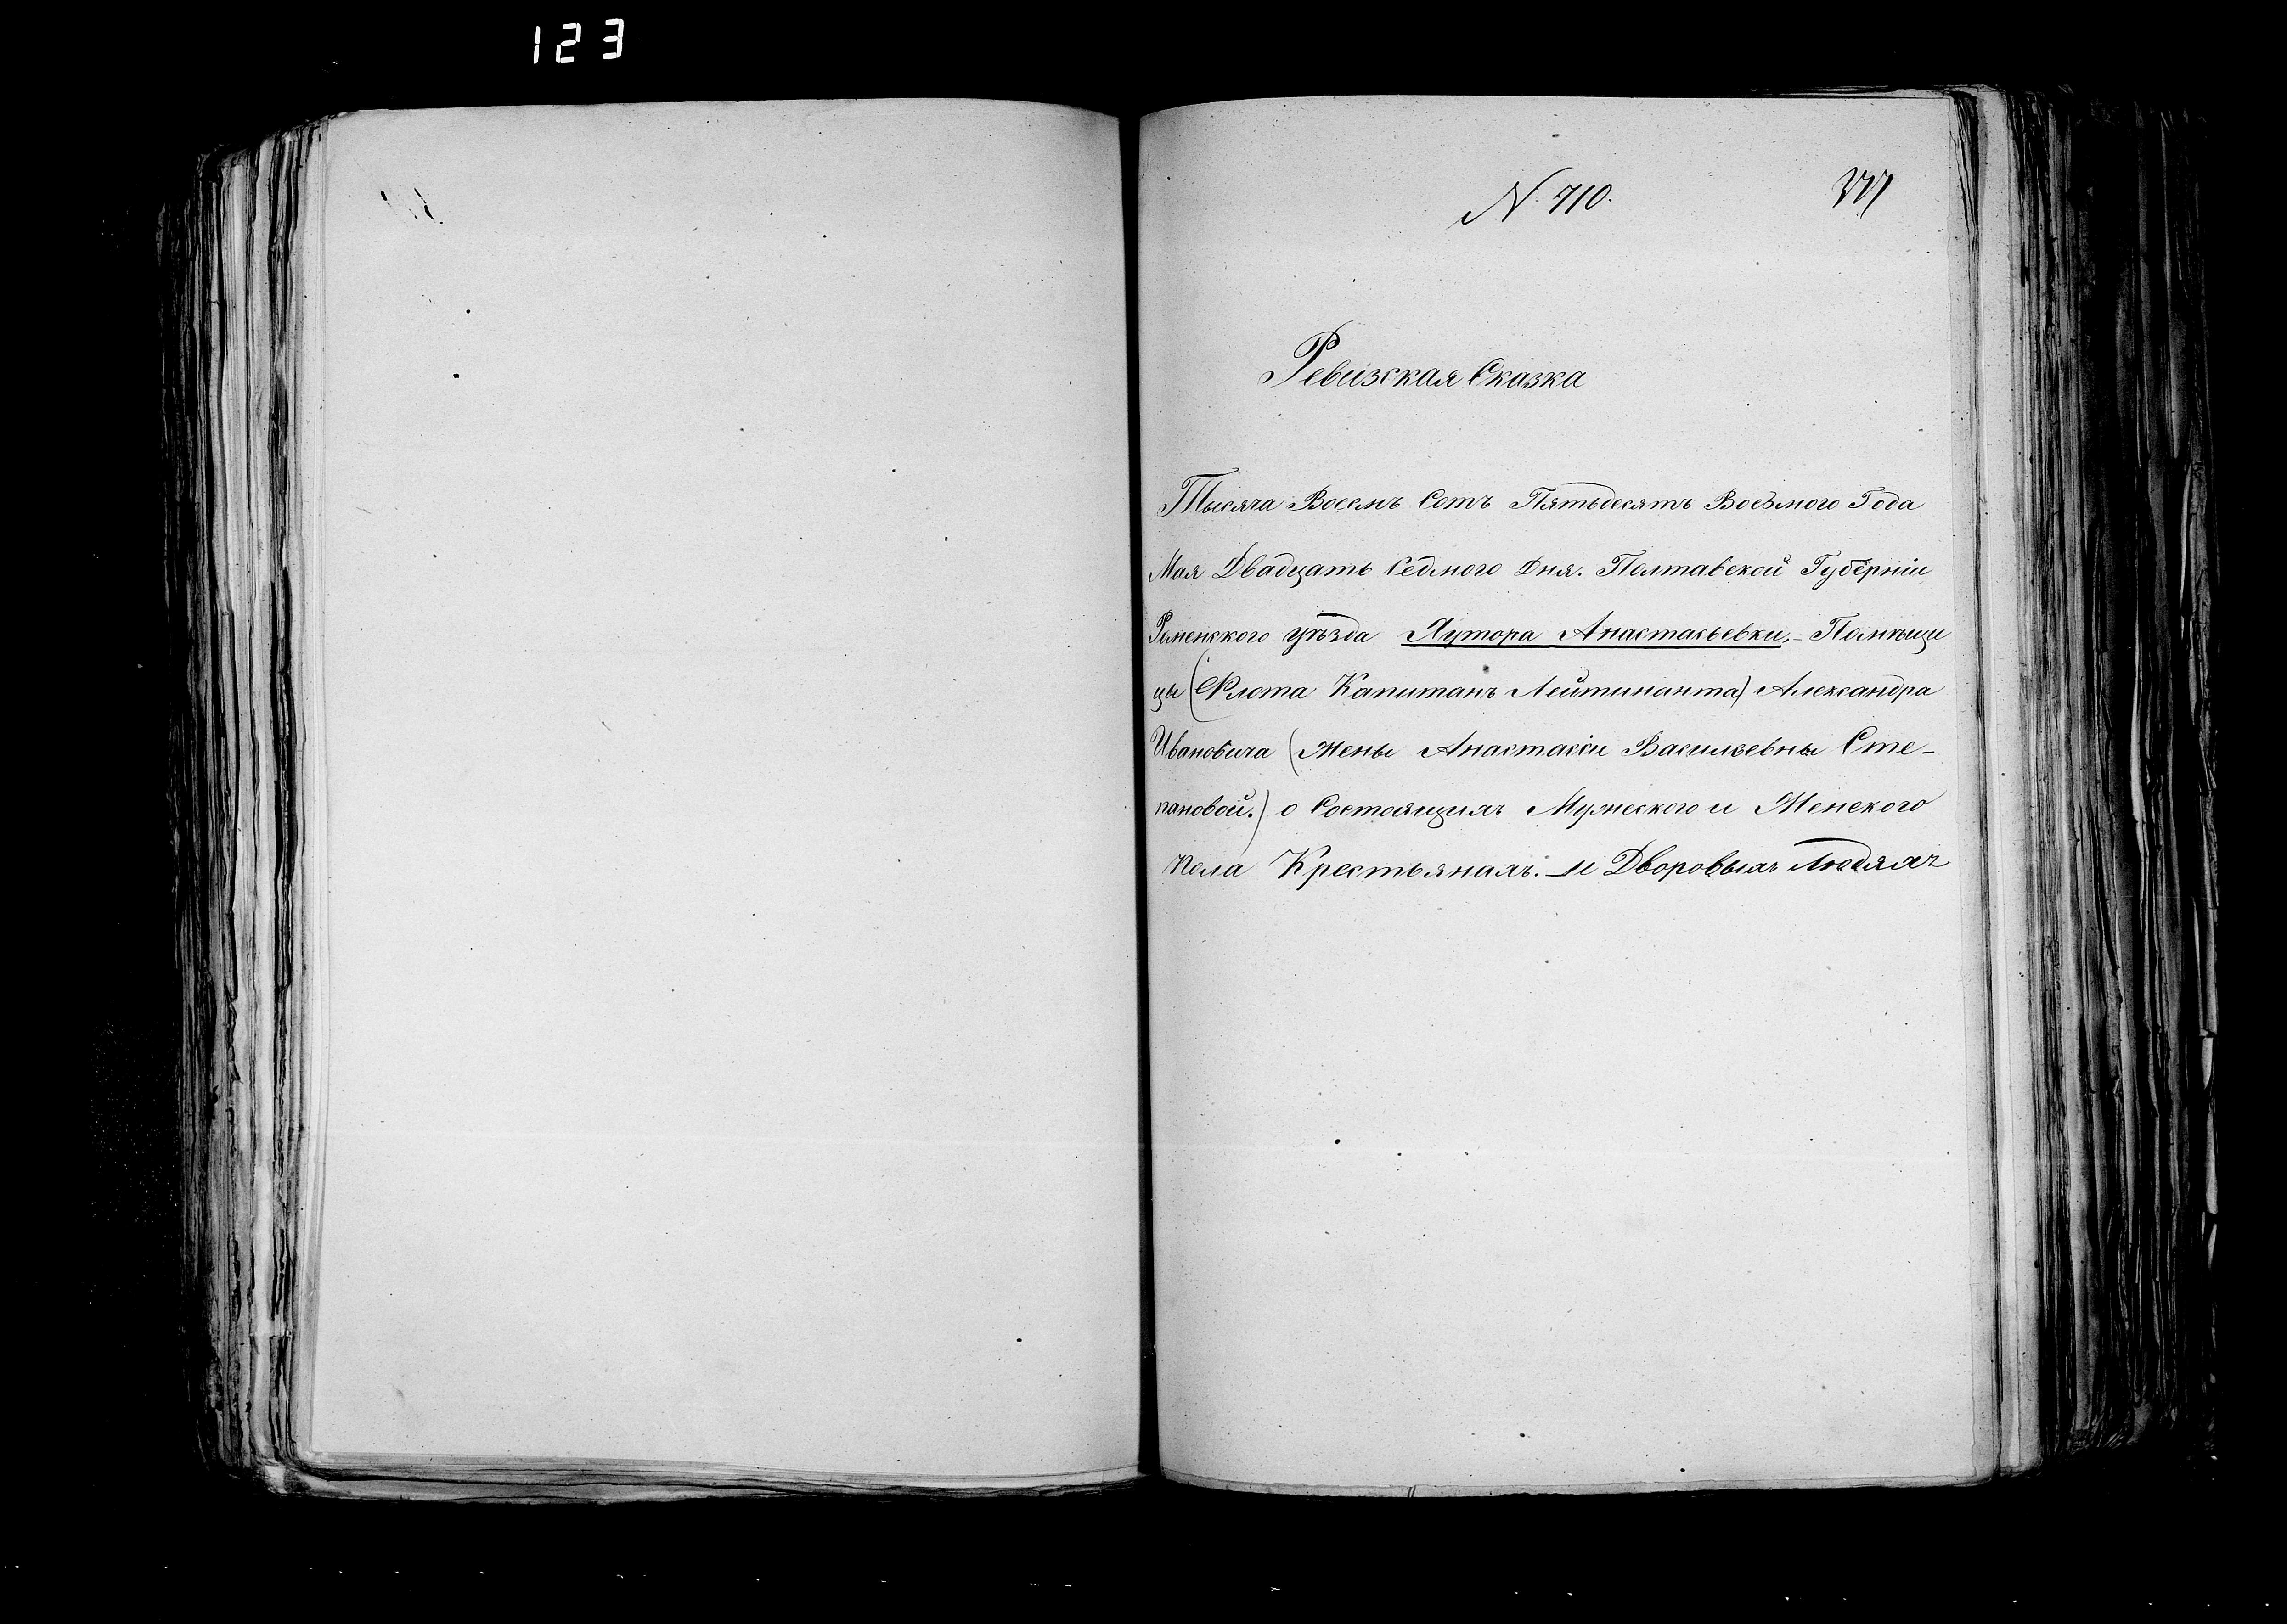 123
N. 710.
Ревизская Сказка
Тысяча Восемъ Сотъ Пятьдесятъ Восьмого Года
Мая Двадцать Седмого Дня. Полтавской Губерніи
Роменского уѣзда Хутора Анастасьевки.- Помѣщи
цы (Флота Капитанъ Лейтинанта) Александра
Ивановича (Жены Анастасіи Васильевны Сте-
пановой.) о Состоящихъ Мужеского и Женского
пола Крестьянахъ. - и Дворовыхъ Людяхъ